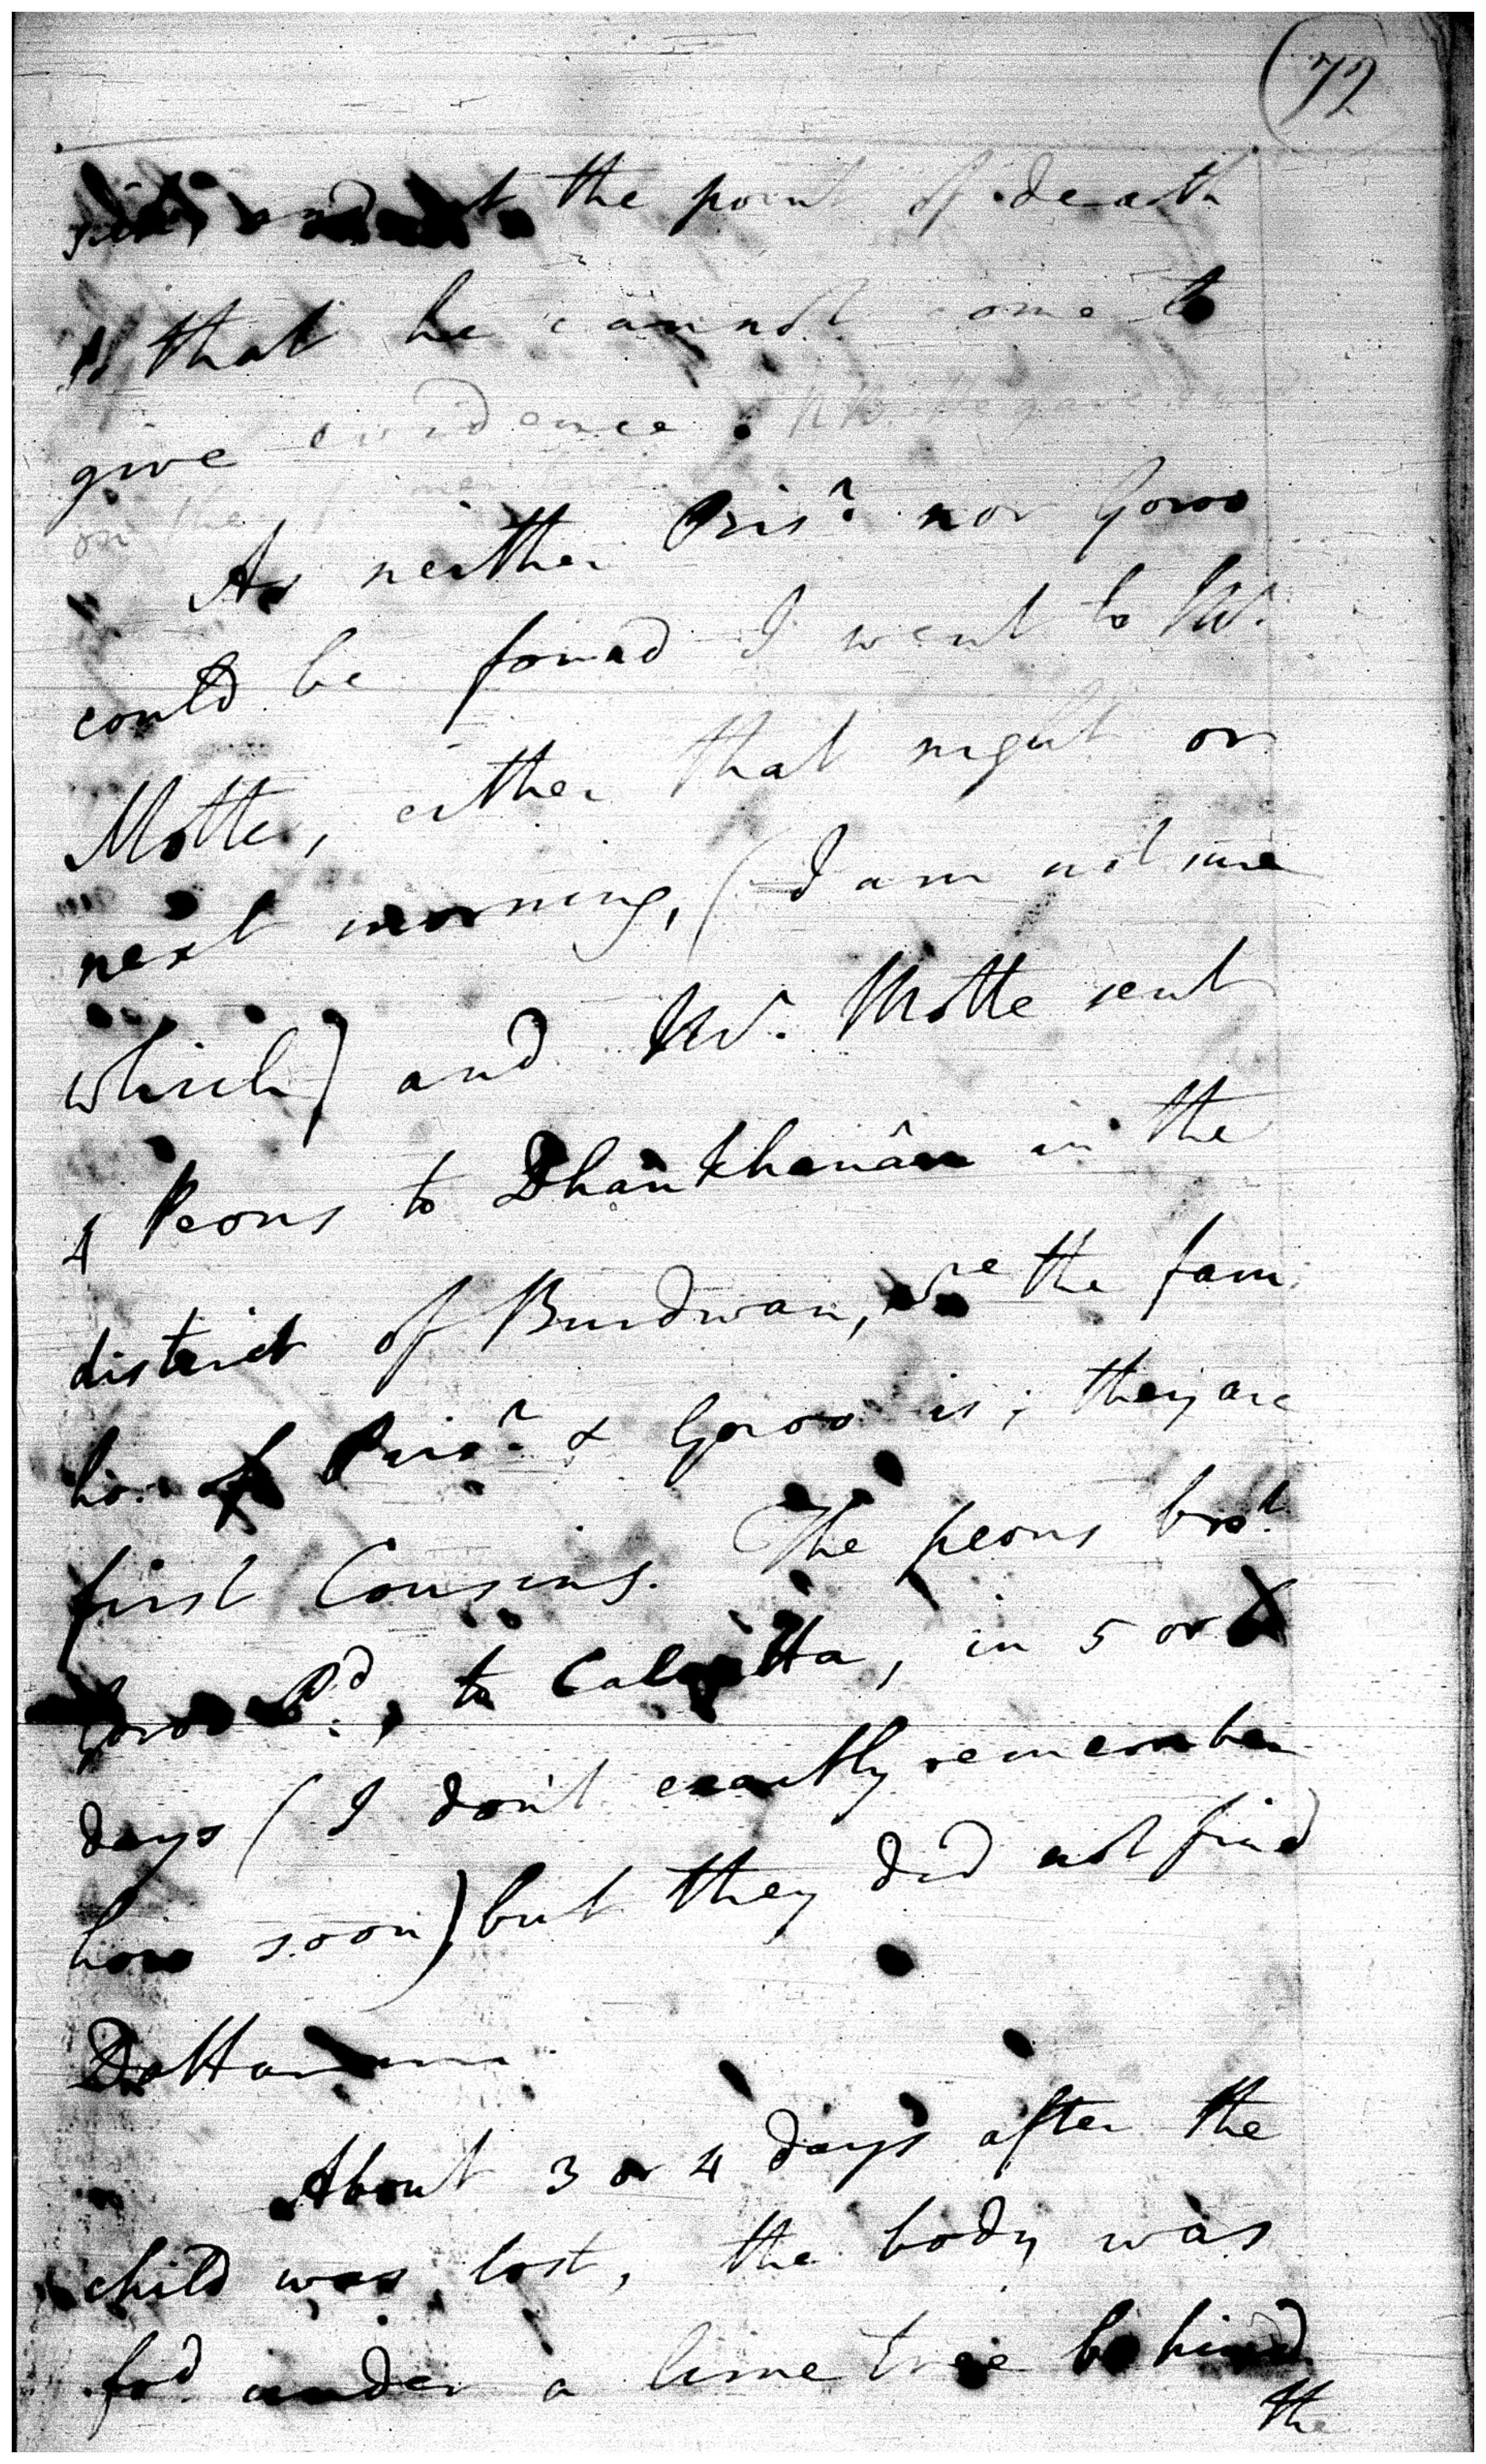 72
sick, and at the point of death
so that he cannot come to
give evidence. N.B. He gave
on the
As neither Prisr. nor Goroo
could be found I went to Mr.
Motte, either that night or
next morning, (I am not sure
which) and Mr. Motte sent
4 Peons to Dhankhanâa in the
district of Burdwan, wre the fam.
ho. of Prisr. & Goroo is; they are
first Cousins. The peons brot.
Goroo Pd., to Calcutta, in 5 or
days (I don't exactly remember
how soon) but they did not find
Dattaram
About 3 or 4 days after the
child was lost, the body was
fod. under a lime tree behind
the